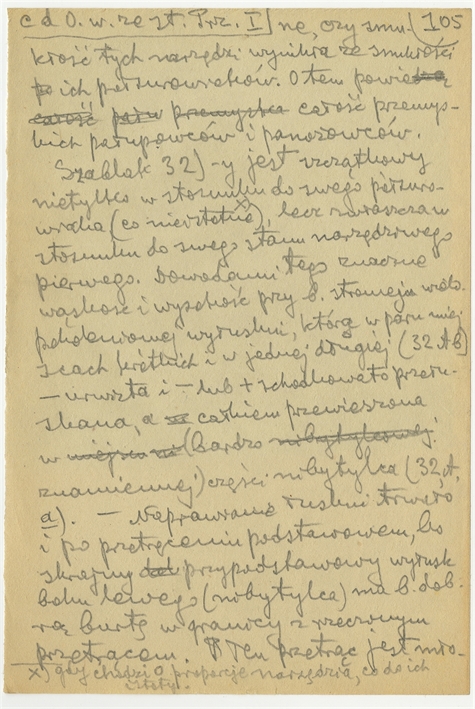 c d O. w. ze st. Prz. I] ne, czy smu- (105
kłość tych narzędzi wynika ze smukłości
ich półsurowiaków. O tem powie
całość przemys-
kich łapupowców i panozowców.
Szablak 32) -y jest szczątkowy
nietylko w stosunku do swego półsuro-
wiaka (co nieistotne x)), lecz zwłaszcza w
stosunku do swego stanu narzędziowego
pierwego. Dowodami tego znaczne
wąskość i wysokość przy b. stromej, wielo-
pokoleniowej wyruskni, którą w paru miej-
scach krótkich i w jednej długiej (32 AB)
— urwista i — lub + schodkowato prze
skana, a całkiem przewieszona
w (bardzo nibytylcowej
znamiennej) części nibytylca (32, A,
a). — Naprawianie ruskni trwało
i po przetrąceniu podstawowem, bo
skrajny przypodstawowy wyrusk
boku lewego (nibytylca) ma b. dob-
rą burtę w granicy z rzeczonym
przetrącem. Ten przetrąc jest mło-
x) gdy chodzi o proporcje narzędzia, co do ich
istoty.